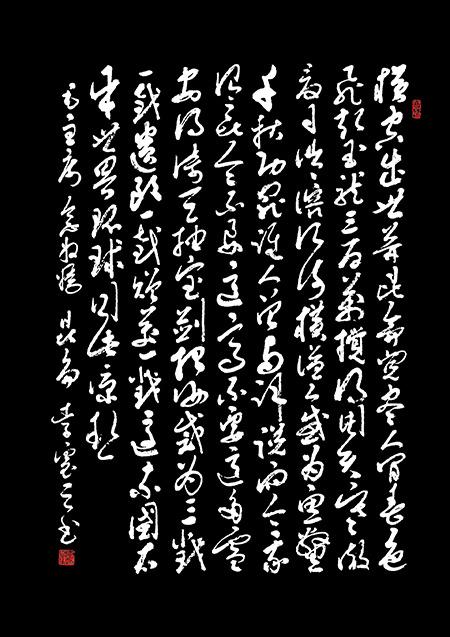 横空出世莽昆仑阅尽人间春色
飞起玉龙三百万搅得周天寒彻
夏日消溶江河横溢人或为鱼鳖
千秋功罪谁人曾与评说而今我
谓昆仑不要这高不要这多雪
安得倚天抽宝剑把汝裁为三截
一截遗欧一截赠美一截还东国太
平世界环球同此凉热
毛主席念奴娇昆仑 李墨书